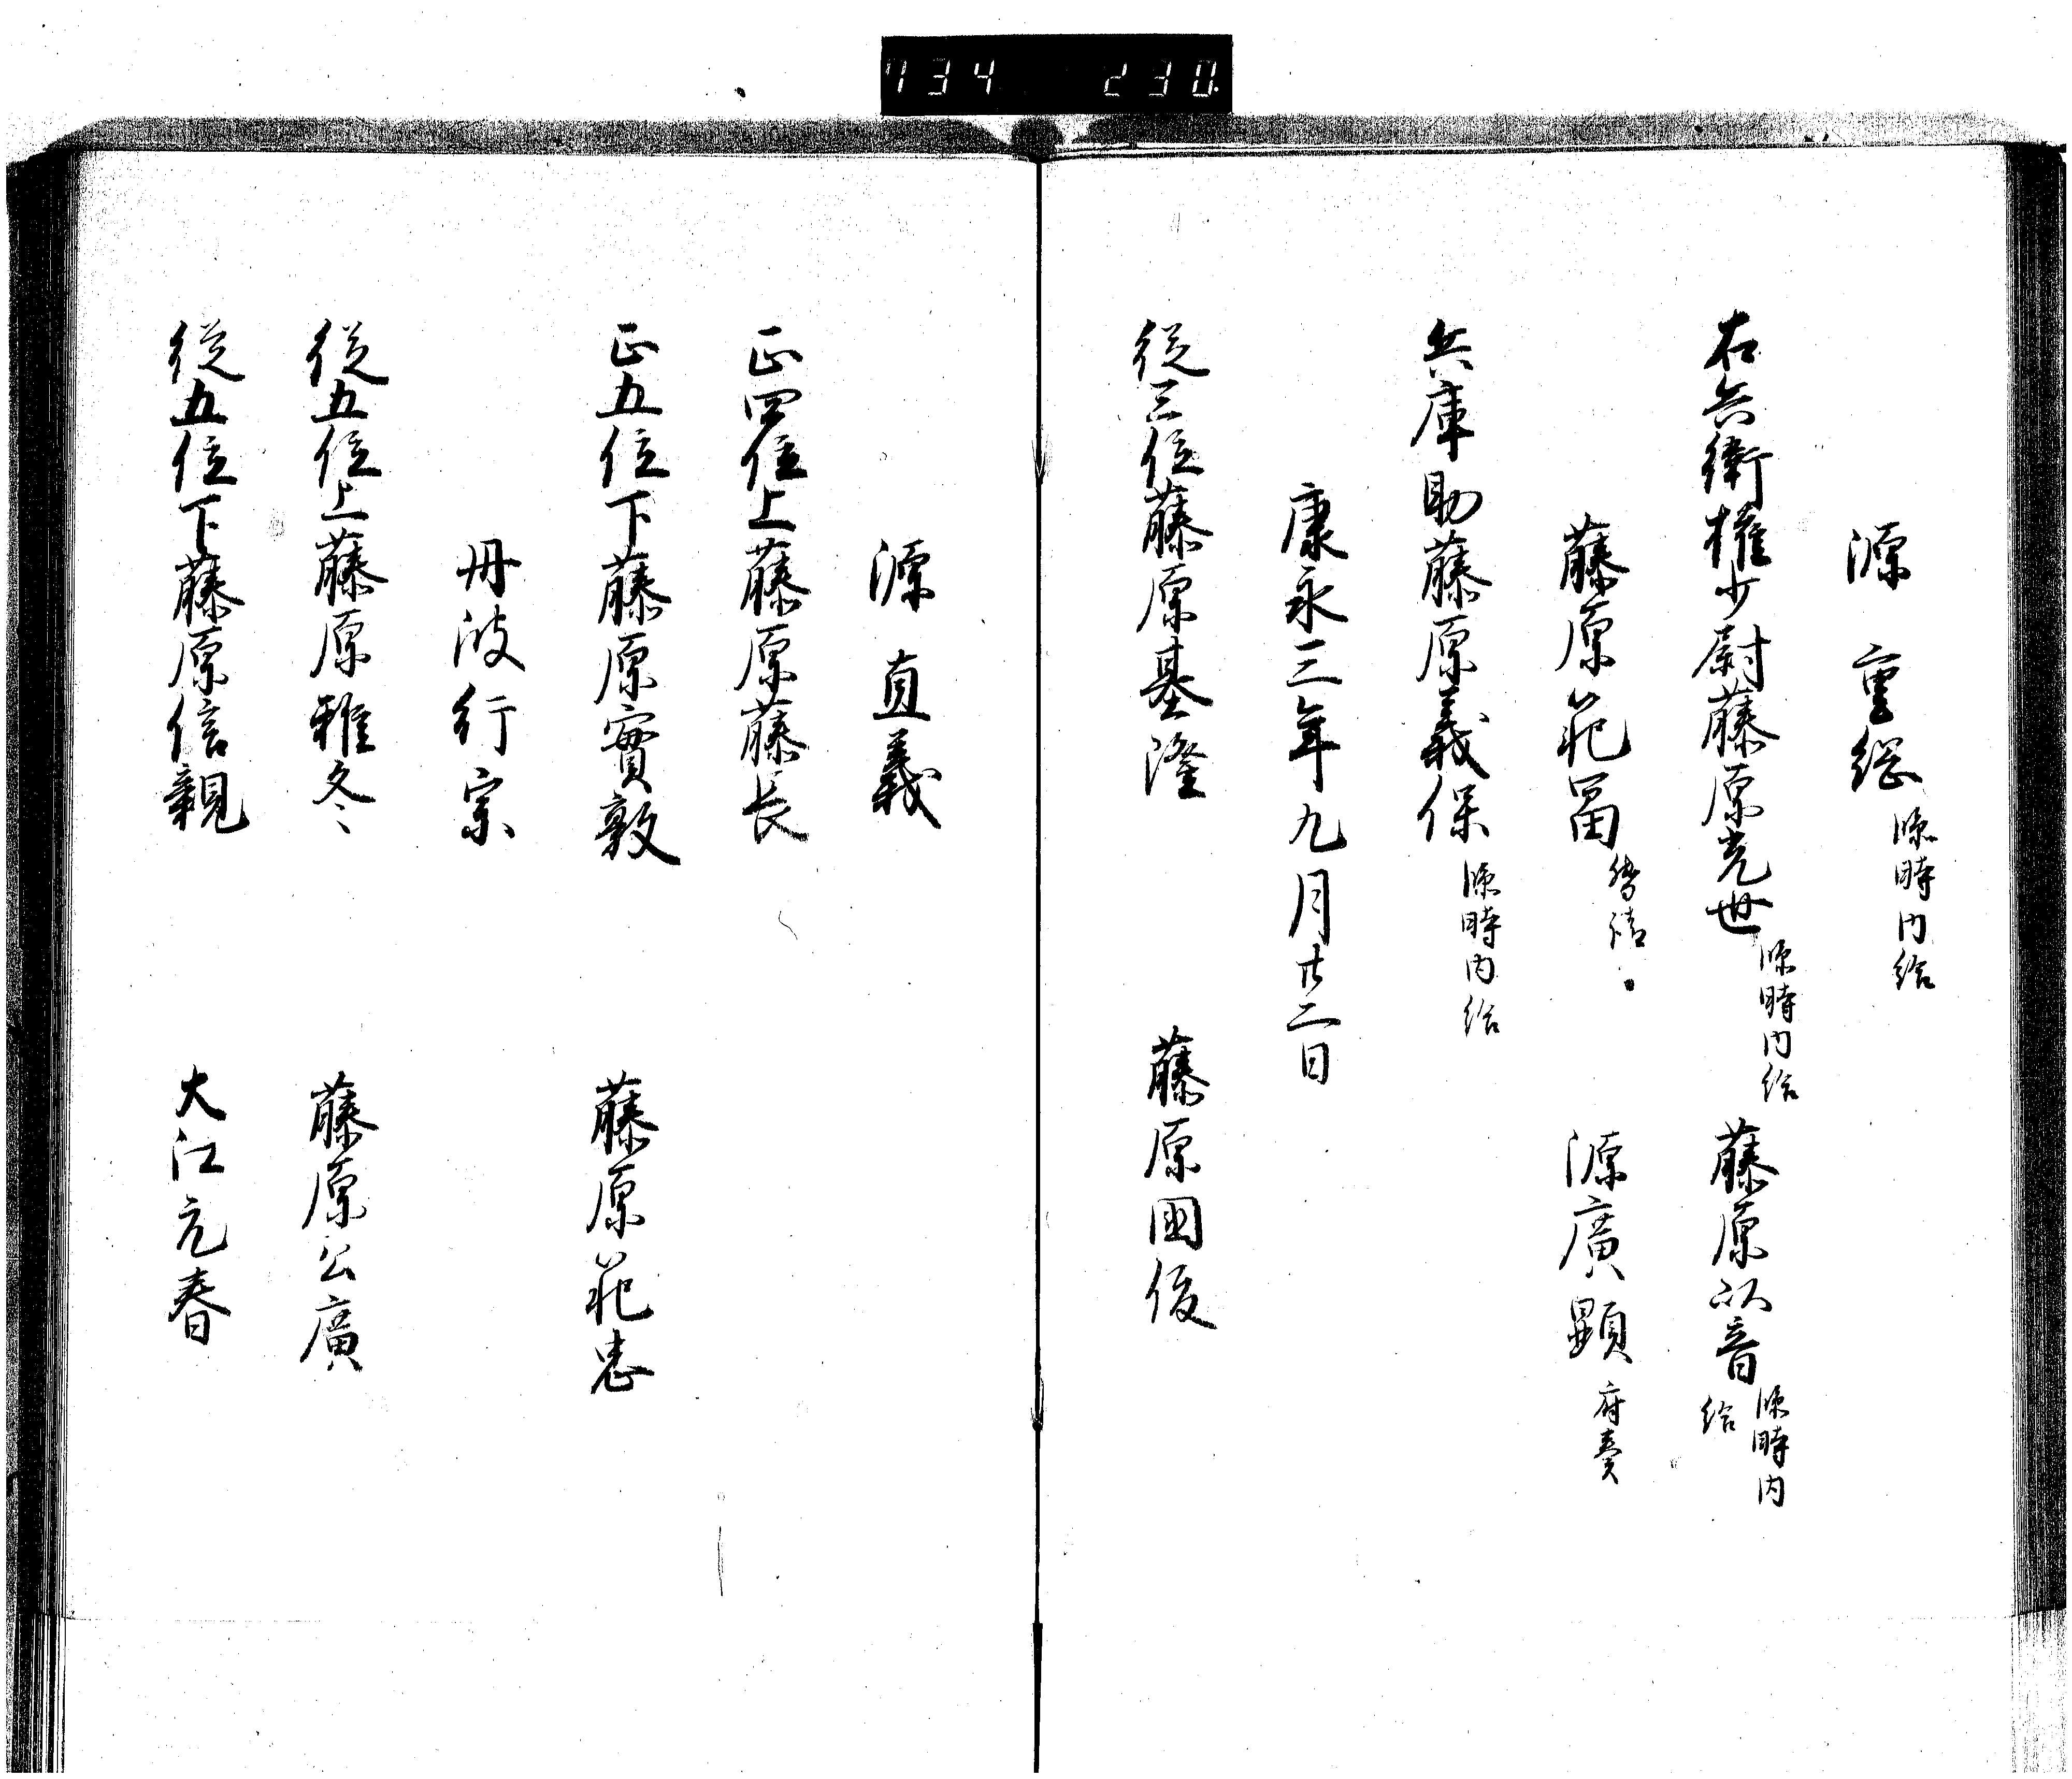 734 230
源 重綱 臨時内給
右兵衛権少尉藤原光世 臨時内給 藤原以音 臨時内給
藤原範冨 源廣顕 府奏
兵庫助藤原義保 臨時内給
康永三年九月廿二日
従三位藤原基隆 藤原国俊
源直義
正四位上藤原藤長
正五位下藤原實敦 藤原範忠
丹波行宗
従五位上藤原雅冬 藤原公廣
従五位下藤原信親 大江元春